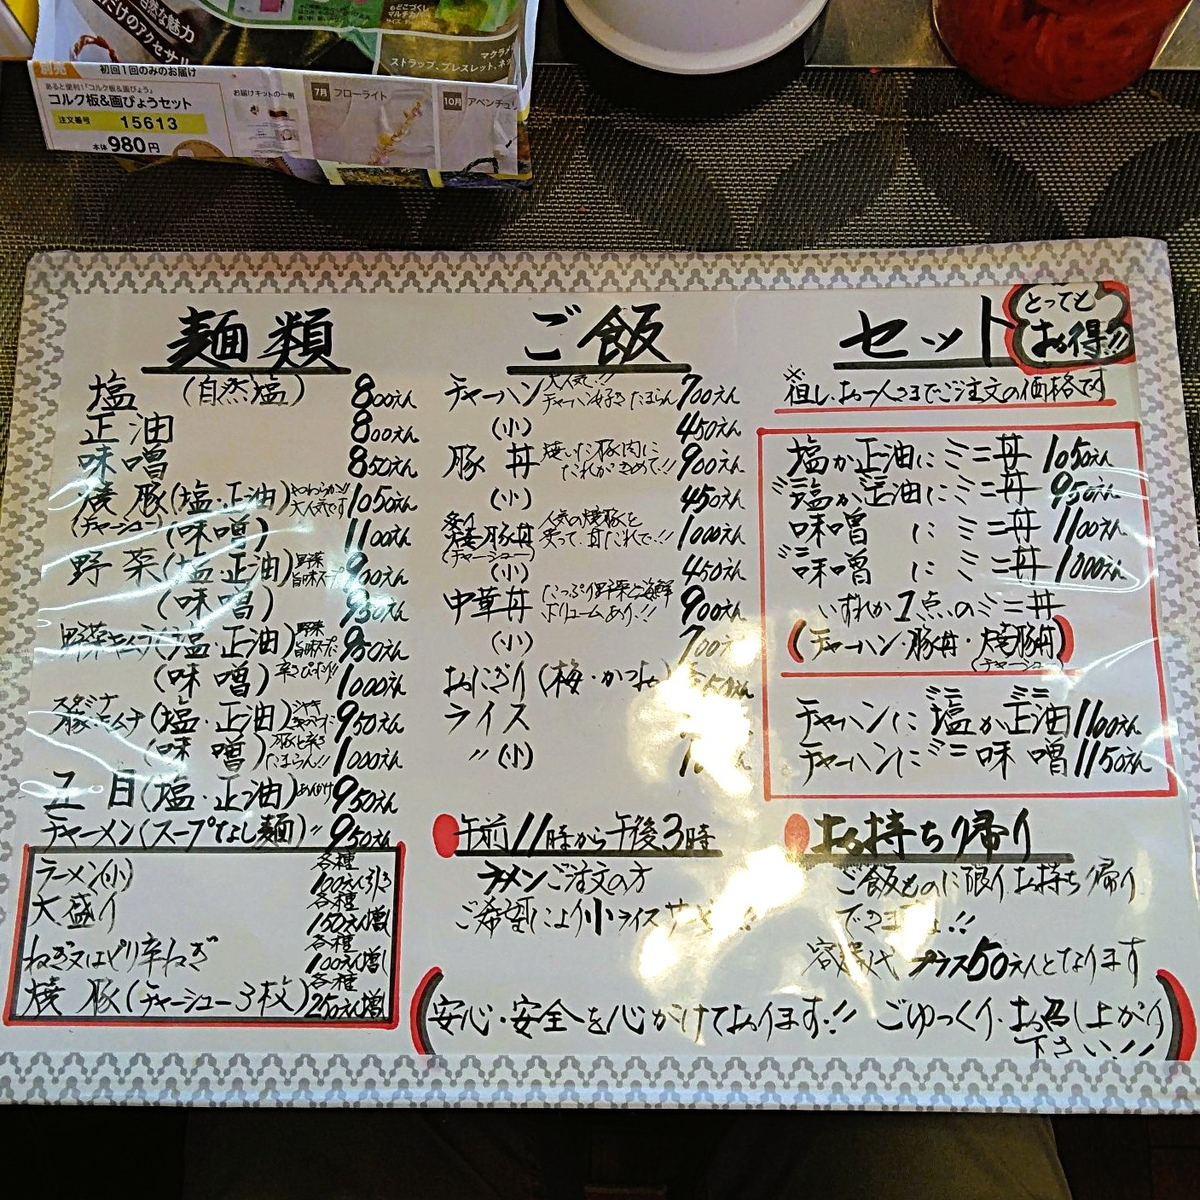 自然な魅力
だけのアクセサリ
マルチカバー
マクラメ
ストラップ、ブレスレット、ネッ
初回1回のみのお届け
あると便利!「コルク板&画びょう」
コルク板&画びょうセット
注文番号 15613
本体980円
お届けキットの一例
7月 フローライト
10月 アベンチュ
麺類
塩 (自然塩) 800えん
正油 800えん
味噌 850えん
焼豚(塩・正油) やわらか!! 大人気です 1050えん
(チャーシュー) (味噌) 1100えん
野菜(塩・正油) 野菜旨味スープ 900えん
(味噌) 950えん
野菜キムチ(塩・正油) 野菜旨味 950えん
(味噌) 1000えん
スタミナ
豚キムチ(塩・正油) 950えん
(味噌) 豚と辛さたまらん!! 1000えん
五目(塩・正油) あんかけ 950えん
チャーメン(スープなし麺) 〃 950えん
ラーメン(小) 各種100えん引き
大盛り 各種150えん増し
ねぎ又はピリ辛ねぎ 各種100えん増し
焼豚(チャーシュー3枚) 各種250えん増
ご飯
チャーハン 大人気!! チャーハン好きたまらん 700えん
(小) 450えん
豚丼 焼いた豚肉にたれがきめて!! 900えん
(小) 450えん
炙り
焼豚丼 人気の焼豚を炙って、丼だれで!! 1000えん
(チャーシュー)
(小) 450えん
中華丼 たっぷり野菜と海鮮ボリュームあり!! 900えん
(小) 700えん
おにぎり(梅・かつお) 50えん
ライス
〃(小)
●午前11時から午後3時
ラーメンご注文の方
ご希望により小ライスサービス!!
セット とってもお得!!
※但し、お一人さまでご注文の価格です
塩か正油にミニ丼 1050えん
ミニ塩かミニ正油にミニ丼 950えん
味噌 にミニ丼 1100えん
ミニ味噌 にミニ丼 1000えん
いずれか1点のミニ丼
(チャーハン・豚丼・焼豚丼)
(チャーシュー)
チャーハンにミニ塩かミニ正油 1100えん
チャーハンにミニ味噌 1150えん
●お持ち帰り
ご飯ものに限りお持ち帰り
できます!!
容器代プラス50えんとなります
(安心・安全を心がけております!! ごゆっくり・お召し上がり下さい!!)